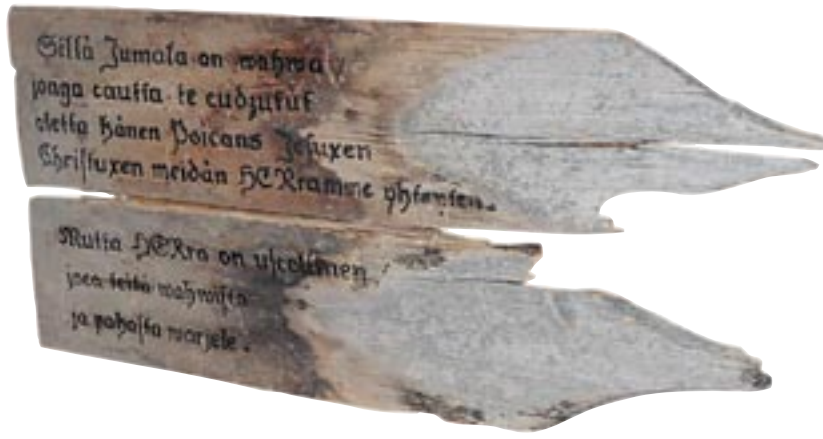 Sillä Jumala on wahwa
jonga cautta te cudzutut
oletta hänen Poicans Jesuxen
Christuxen meidän HERramme yhteyten.
Mutta HERra on uscollinen,
joca teitä wahwista
ja pahasta warjele.